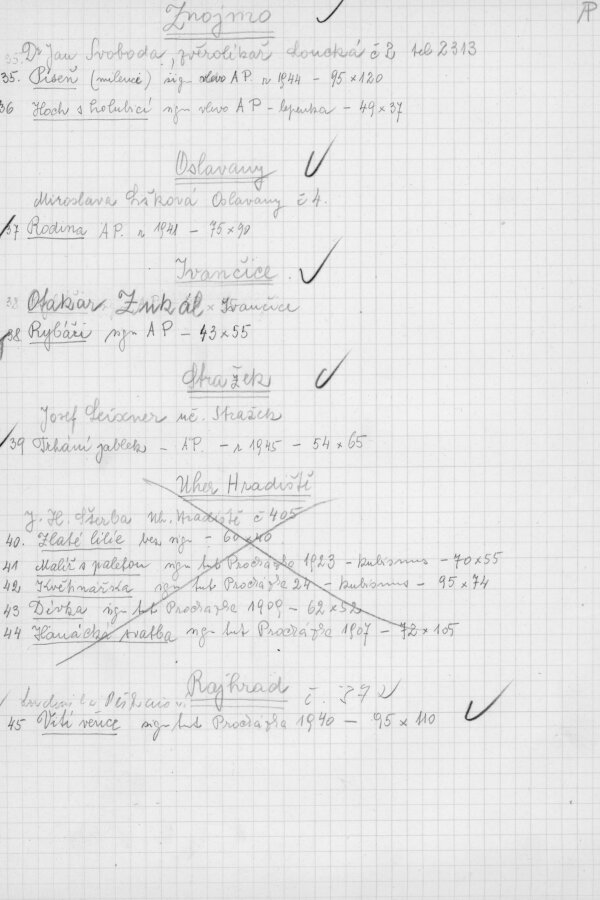 Znojmo
AP
35. Dr Jan Svoboda, zvěrolékař Loucká č 2 tel 2313
35. Píseň (milenci) sig. vlevo AP. r 1944 – 95 × 120
36 Hoch s holubicí sign vlevo AP – lepenka – 49 × 37
Oslavany
Miroslava Oslavany č 4.
37 Rodina AP. r 1941 – 75 × 90
Ivančice
38 Otakar Zukal Ivančice
38 Rybáři sign AP – 43 × 55
Stražek
Josef Leixner uč. Stražek
39 Trhání jablek – AP. – r 1945 – 54 × 65
Uher Hradiště
J. H. Šterba Uh. Hradiště č 405
40. Zlaté lilie bez sign – 60 × 40
41 Malíř s paletou sign tut Procházka 1923 – kubismus – 70 × 55
42 Květinářka sign tut Procházka 24 – kubismus – 95 × 74
43 Dívka sign tut Procházka 1909 – 62 × 52
44 Hanácká svatba sign tut Procházka 1907 – 72 × 105
Rajhrad č. 372
45 Vití věnce sign tut Procházka 1940 – 95 × 110